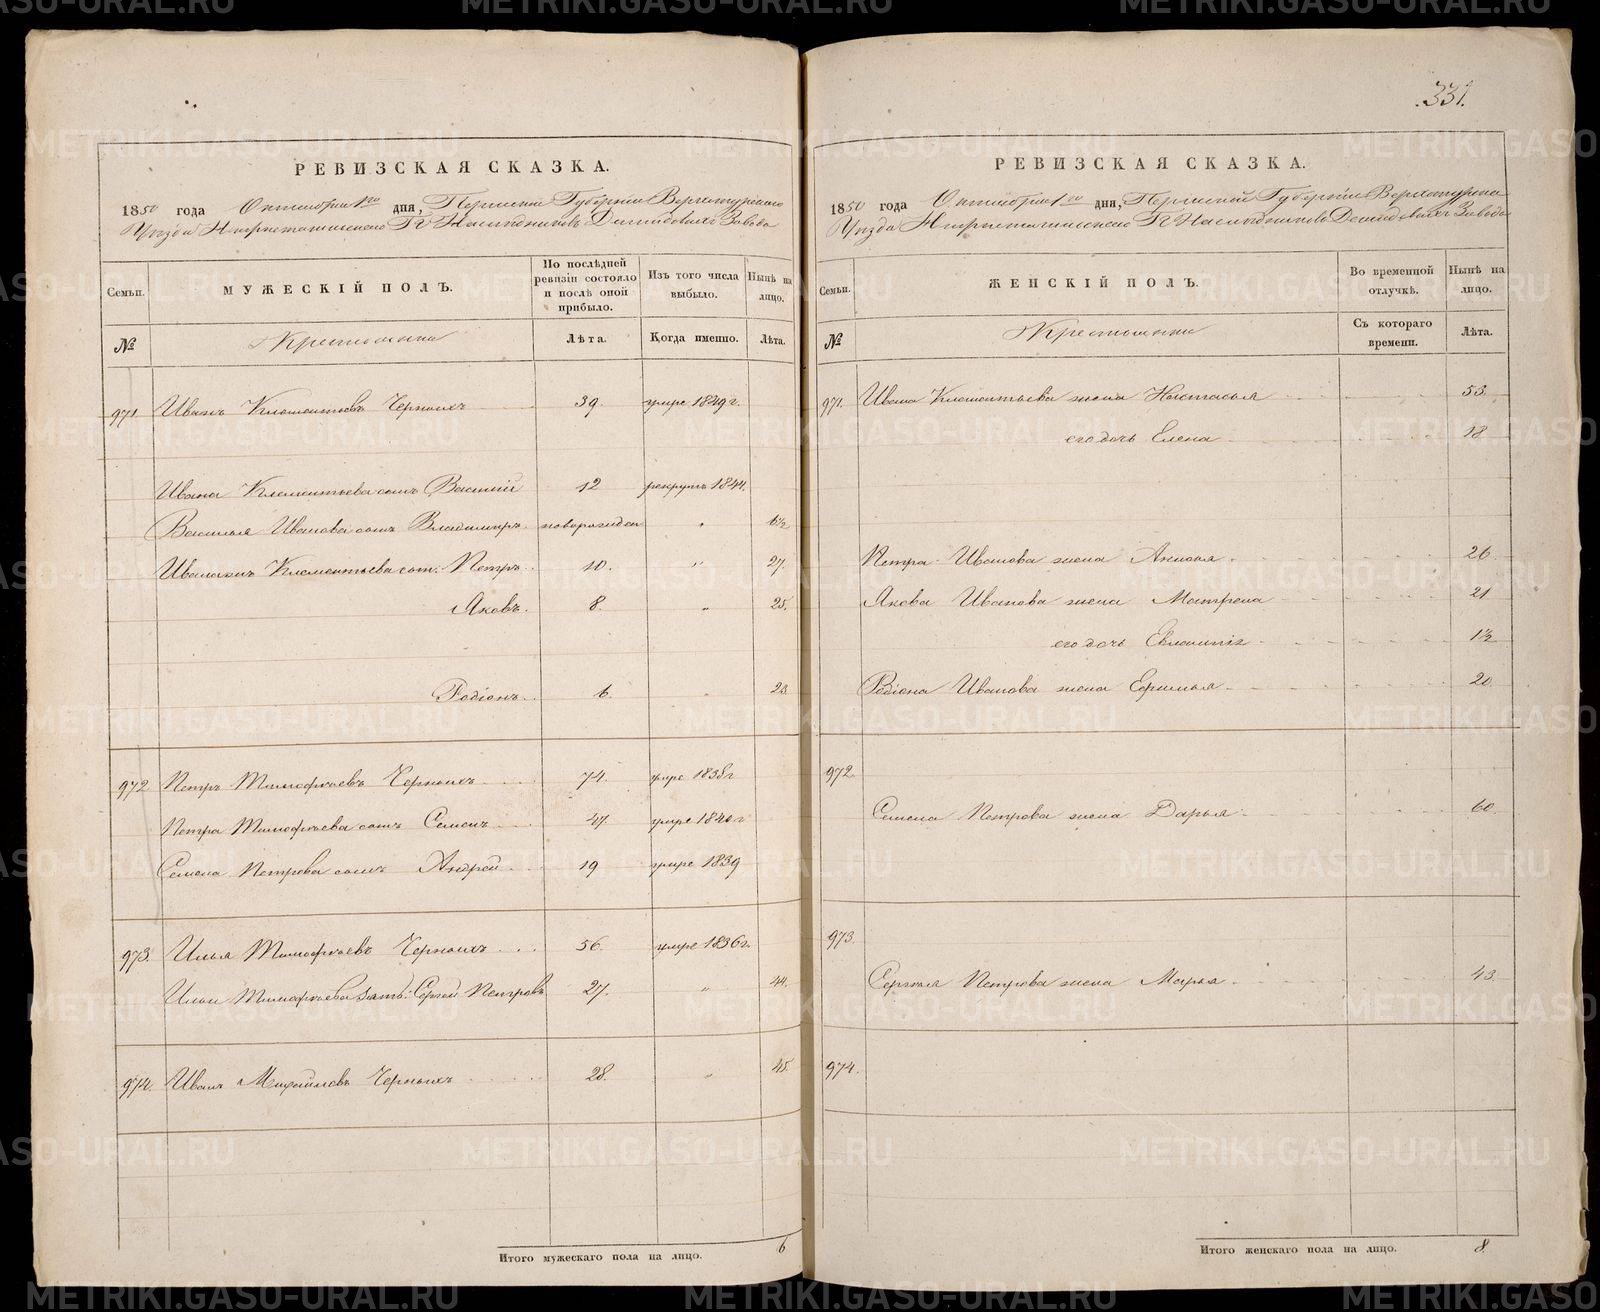 331.
РЕВИЗСКАЯ СКАЗКА.
1850 года Октября 1го дня, Пермской Губернiи Верхотурскаго
Уѣзда Нижнетагильскаго Гг Наслѣдниковъ Демидовыхъ Завода
Семьи.
МУЖЕСКIЙ ПОЛЪ.
По послѣдней ревизiи состояло и послѣ оной прибыло.
Изъ того числа выбыло.
Нынѣ на лицо.
№
Крестьяне
Лѣта.
Когда именно.
Лѣта.
971. Иванъ Клементьевъ Черныхъ 39. умре 1849 г.
Ивана Клементьева сынъ Василiй 12 рекрутъ 1844.
Василья Иванова сынъ Владимiръ новорожден " 6½
Клементьева сын. Петръ 10. " 27.
Яковъ. 8. " 25.
Родiонъ. 6. " 23.
972 Петръ Тимофѣевъ Черныхъ 74. умре 1838 г
Петра Тимофѣева сынъ Семенъ 47. умре 1840 г
Семена Петрова сынъ Андрей 19 умре 1839
973. Илья Тимофѣевъ Черныхъ 56. умре 1836 г.
Ильи Тимофѣева зять: Сергѣй Петровъ 27. " 44.
974. Иванъ Михайловъ Черныхъ 28. " 45.
Итого мужескаго пола на лицо. 6
РЕВИЗСКАЯ СКАЗКА.
1850 года Октября 1го дня, Пермской Губернiи Верхотурскаго
Уѣзда Нижнетагильскаго Гг Наслѣдниковъ Демидовыхъ Завода
Семьи.
ЖЕНСКIЙ ПОЛЪ.
Во временной отлучкѣ.
Нынѣ на лицо.
№
Крестьянки
Съ котораго времени.
Лѣта.
971. Ивана Клементьева жена Настасья 53.
его дочь Елена 18
Петра Иванова жена Анисья 26
Якова Иванова жена Матрена 21
его дочь 1½
Родiона Иванова жена Ефимья 20.
972.
Семена Петрова жена Дарья 60.
973.
Сергѣя Петрова жена Марья 43.
974.
Итого женскаго пола на лицо. 8
METRIKI.GASO-URAL.RU